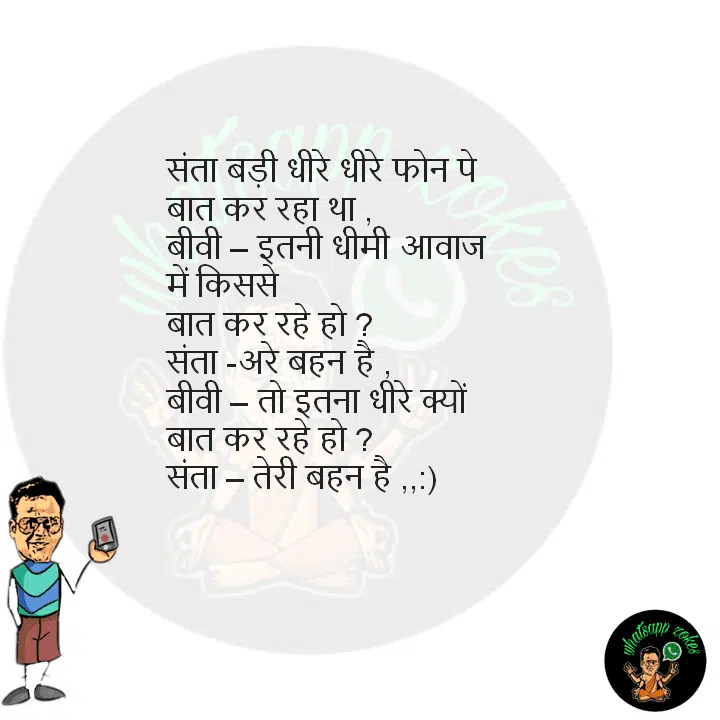 संता बड़ी धीरे धीरे फोन पे
बात कर रहा था ,
बीवी – इतनी धीमी आवाज
में किससे
बात कर रहे हो ?
संता -अरे बहन है ,
बीवी – तो इतना धीरे क्यों
बात कर रहे हो ?
संता – तेरी बहन है ,,:)
whatsapp zokes
whatsapp zokes